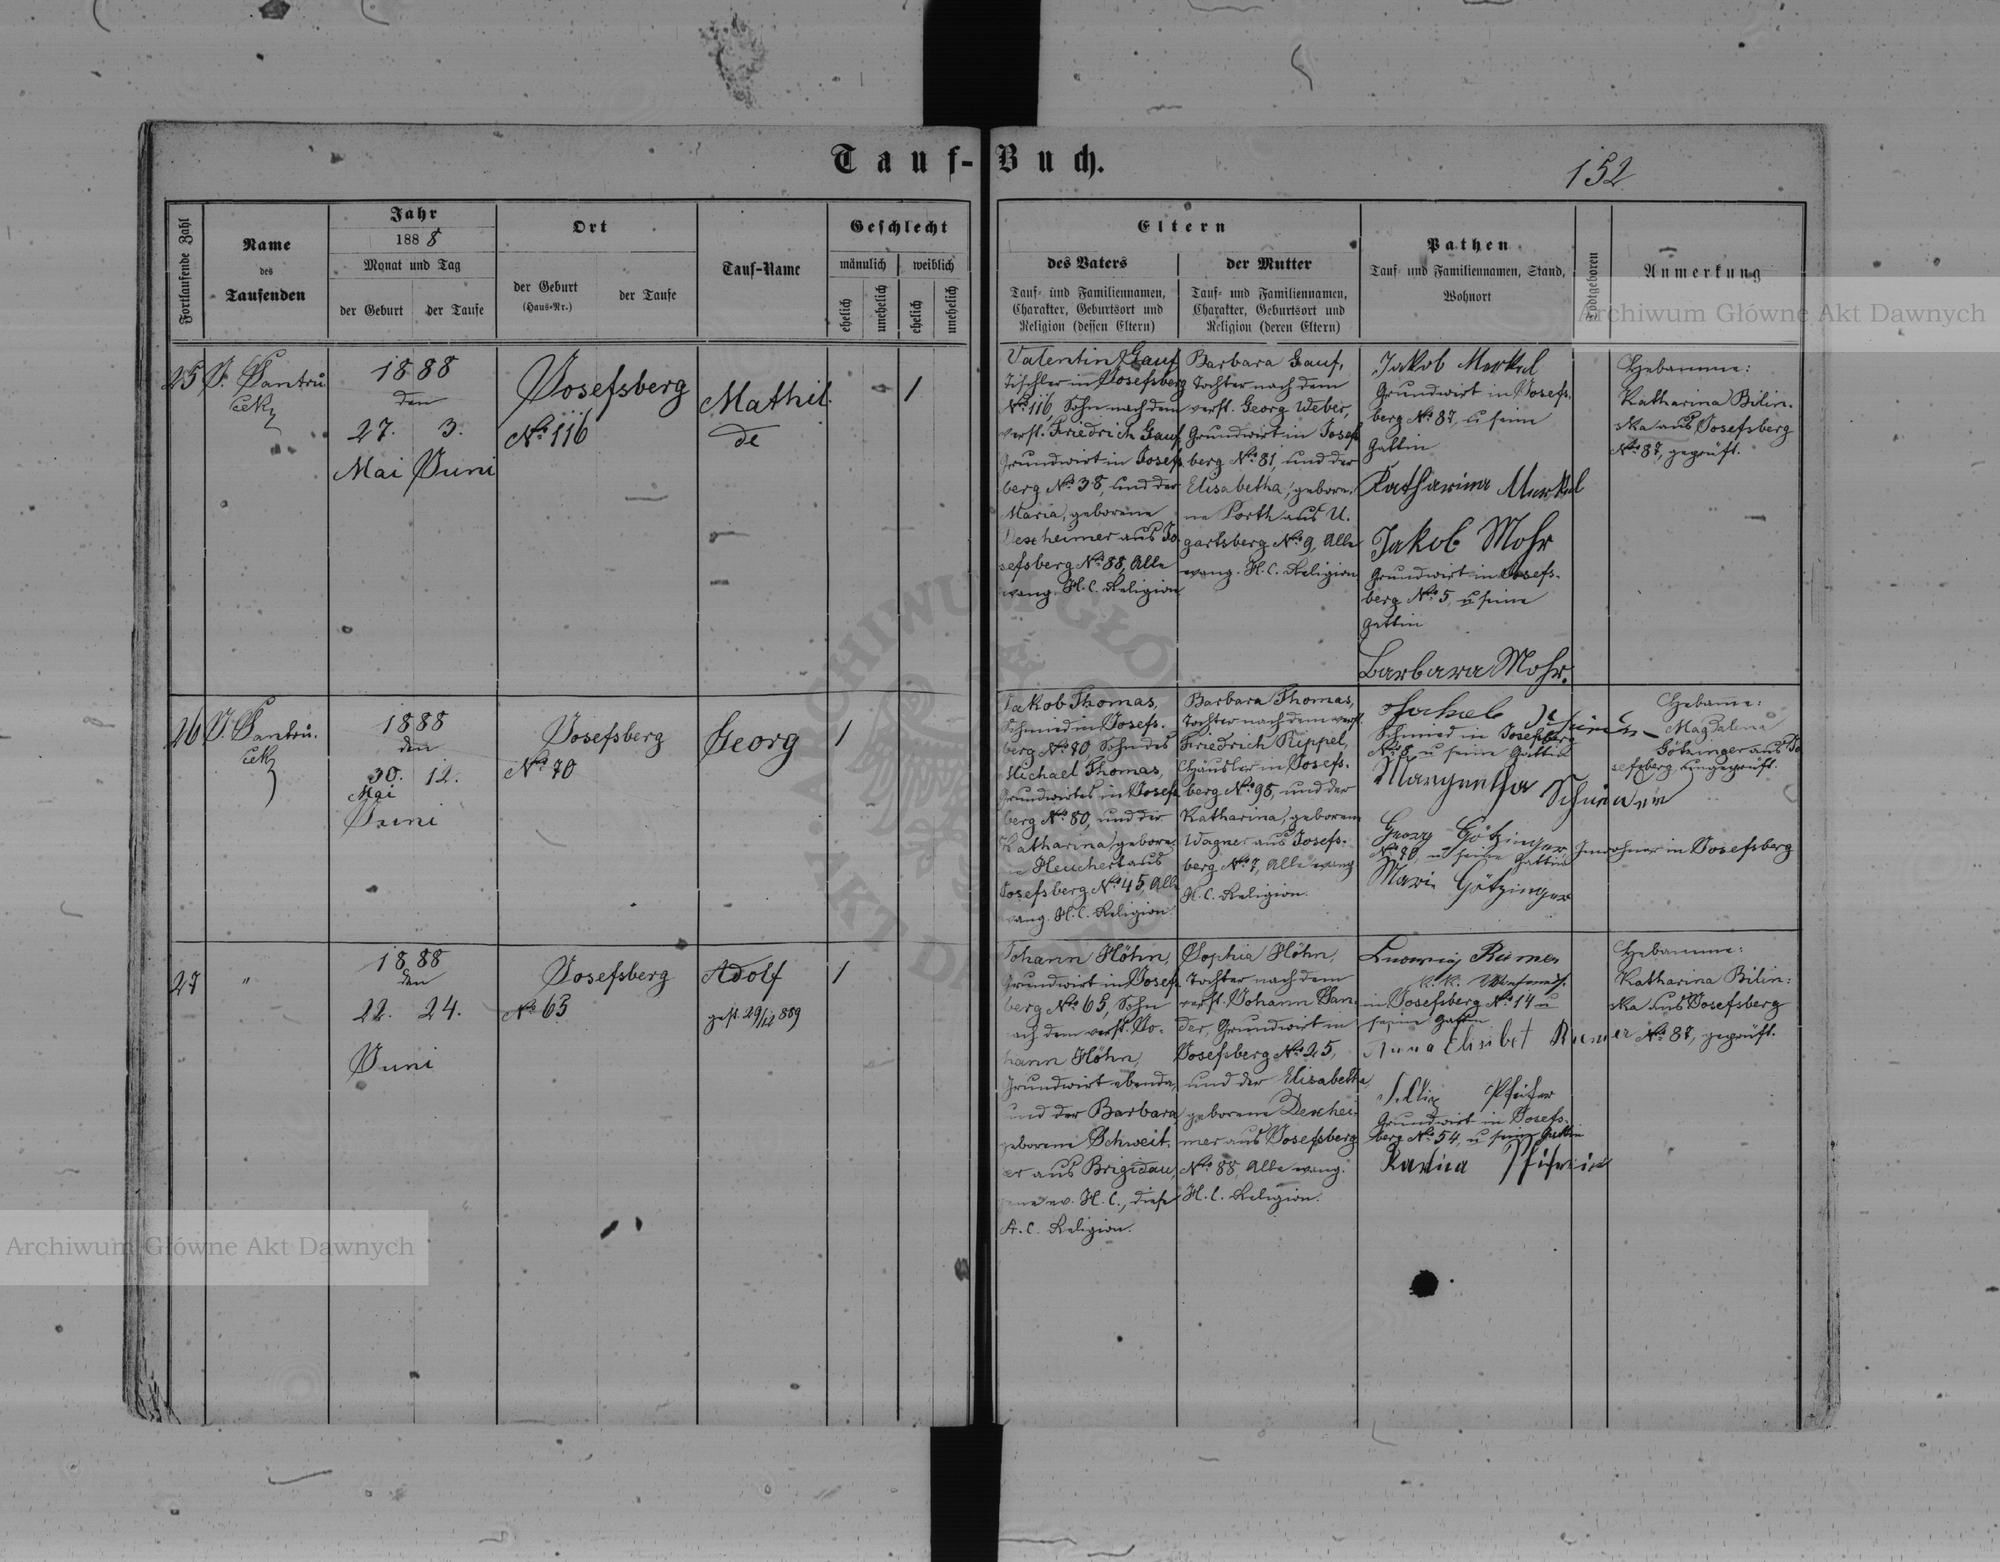 Tauf-Buch.
152
Fortlaufende Zahl
Name
des
Taufenden
Jahr
188 8
Monat und Tag
der Geburt
der Taufe
Ort
der Geburt
(Haus-Nr.)
der Taufe
Tauf-Name
Geschlecht
männlich
weiblich
ehelich
unehelich
ehelich
unehelich
Eltern
des Vaters
Tauf- und Familiennamen,
Charakter, Geburtsort und
Religion (dessen Eltern)
der Mutter
Tauf- und Familiennamen,
Charakter, Geburtsort und
Religion (deren Eltern)
Pathen
Tauf- und Familiennamen, Stand,
Wohnort
Todtgeboren
Anmerkung
25
J. Jantru
1888
den
27. 3.
Mai Juni
Josefsberg
No. 116
Mathil-
de
1
Valentin Gauf
Tischler in Josefsberg
No. 116, Sohn nach dem
verst. Friedrich Gauf
Grundwirt in Josefs
berg No. 38, und der
Maria, geborene
Dexheimer aus Jo
sefsberg No. 88, Alle
evang. H. C. Religion
Barbara Gauf,
Tochter nach dem
verst. Georg Weber,
Grundwirt in Josefs
berg No. 81, und der
Elisabetha, gebore-
ne Porth aus U.
gartsberg No. 9, Alle
evang. H. C. Religion
Jakob Merkel
Grundwirt in Josefs-
berg No. 87, u seine
Gattin
Katharina Merkel
Jakob Mohr
Grundwirt in Josefs-
berg No. 5, u seine
Gattin
Barbara Mohr.
Hebamme:
Katharina Bilin-
ska aus Josefsberg
No. 87, geprüft.
26
J. Jantru.
1888
den
30. 12.
Mai
Juni
Josefsberg
No. 70
Georg
1
Jakob Thomas,
Schmied in Josefs-
berg No. 70, Sohn des
Michael Thomas,
Grundwirtes in Josefs
berg No. 80, und der
Katharina, gebore-
ne Heuchert aus
Josefsberg No. 45, Alle
evang. H. C. Religion.
Barbara Thomas,
Tochter nach dem verst.
Friedrich Rippel,
Häusler in Josefs-
berg No. 98, und der
Katharina, geborene
Wagner aus Josefs-
berg No. 7, Alle evang
H. C. Religion.
Schmied in Josefsberg
No. 8 u seine Gattin
Margretha
Georg Götzinger
No. 70, u seine Gattin Inwohner in Josefsberg
Marie Götzinger
Hebamme:
Magdalena
Götzinger aus Jo
sefsberg, ungeprüft.
27
"
1888
den
22. 24.
Juni
Josefsberg
No. 63
Adolf
gest. 29/12 889
1
Johann Höhn,
Grundwirt in Josefs
berg No. 63, Sohn
nach dem verst. Jo-
hann Höhn,
Grundwirt ebenda,
und der Barbara,
geborene Schweit.
er aus Brigidau,
jene ev. H. C., diese
A. C. Religion.
Sophia Höhn,
Tochter nach dem
verst. Johann San-
der, Grundwirt in
Josefsberg No. 25,
und der Elisabetha
geborene Dexhei-
mer aus Josefsberg
No. 88, Alle evang.
H. C. Religion.
Ludwig
in Josefsberg No. 14 u
seine Gattin
Anna Elisabet
Pfeifer
Grundwirt in Josefs-
berg No. 54, u seine Gattin
Hebamme:
Katharina Bilin-
ska aus Josefsberg
No. 87, geprüft.
Archiwum Główne Akt Dawnych
Archiwum Główne Akt Dawnych